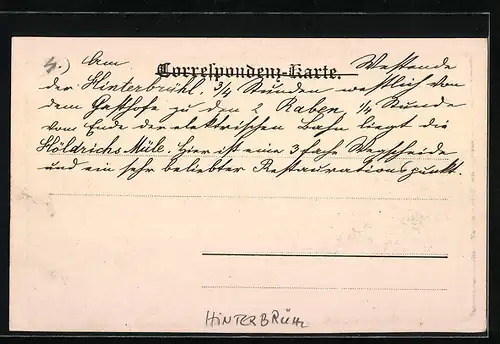 4.) Am Correspondenz-Karte. Westende
der Hinterbrühl, 3/4 Stunden westlich von
dem Gasthofe zu den 2 Raben 1/4 Stunde
vom Ende der elektrischen Bahn liegt die
Höldrichs Müle. Hier ist eine 3 fache Wegscheide
und ein sehr beliebter Restaurationspunkt.
HINTERBRÜHL